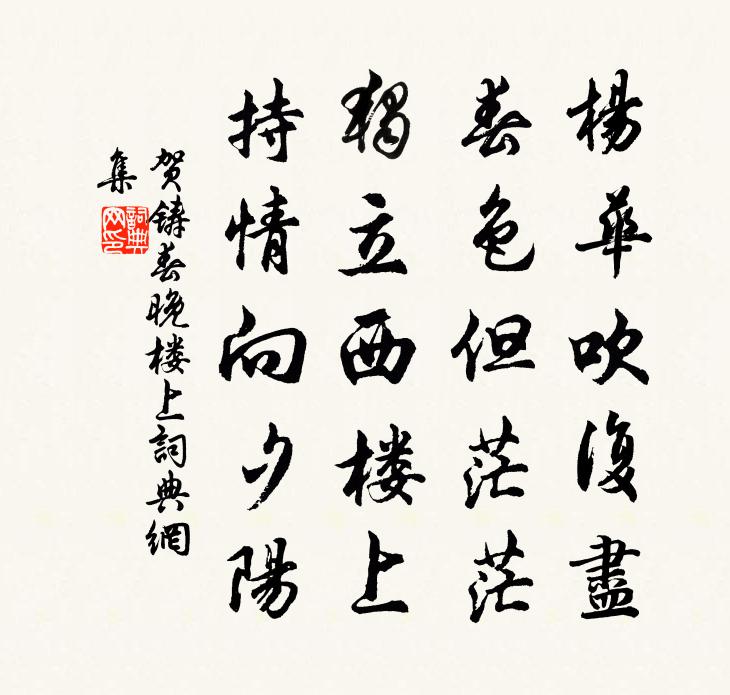 楊華吹復盡
春色但茫茫
獨立西楼上
持情向夕陽
贺鑄春晚楼上詞典網
集
詞典
网印